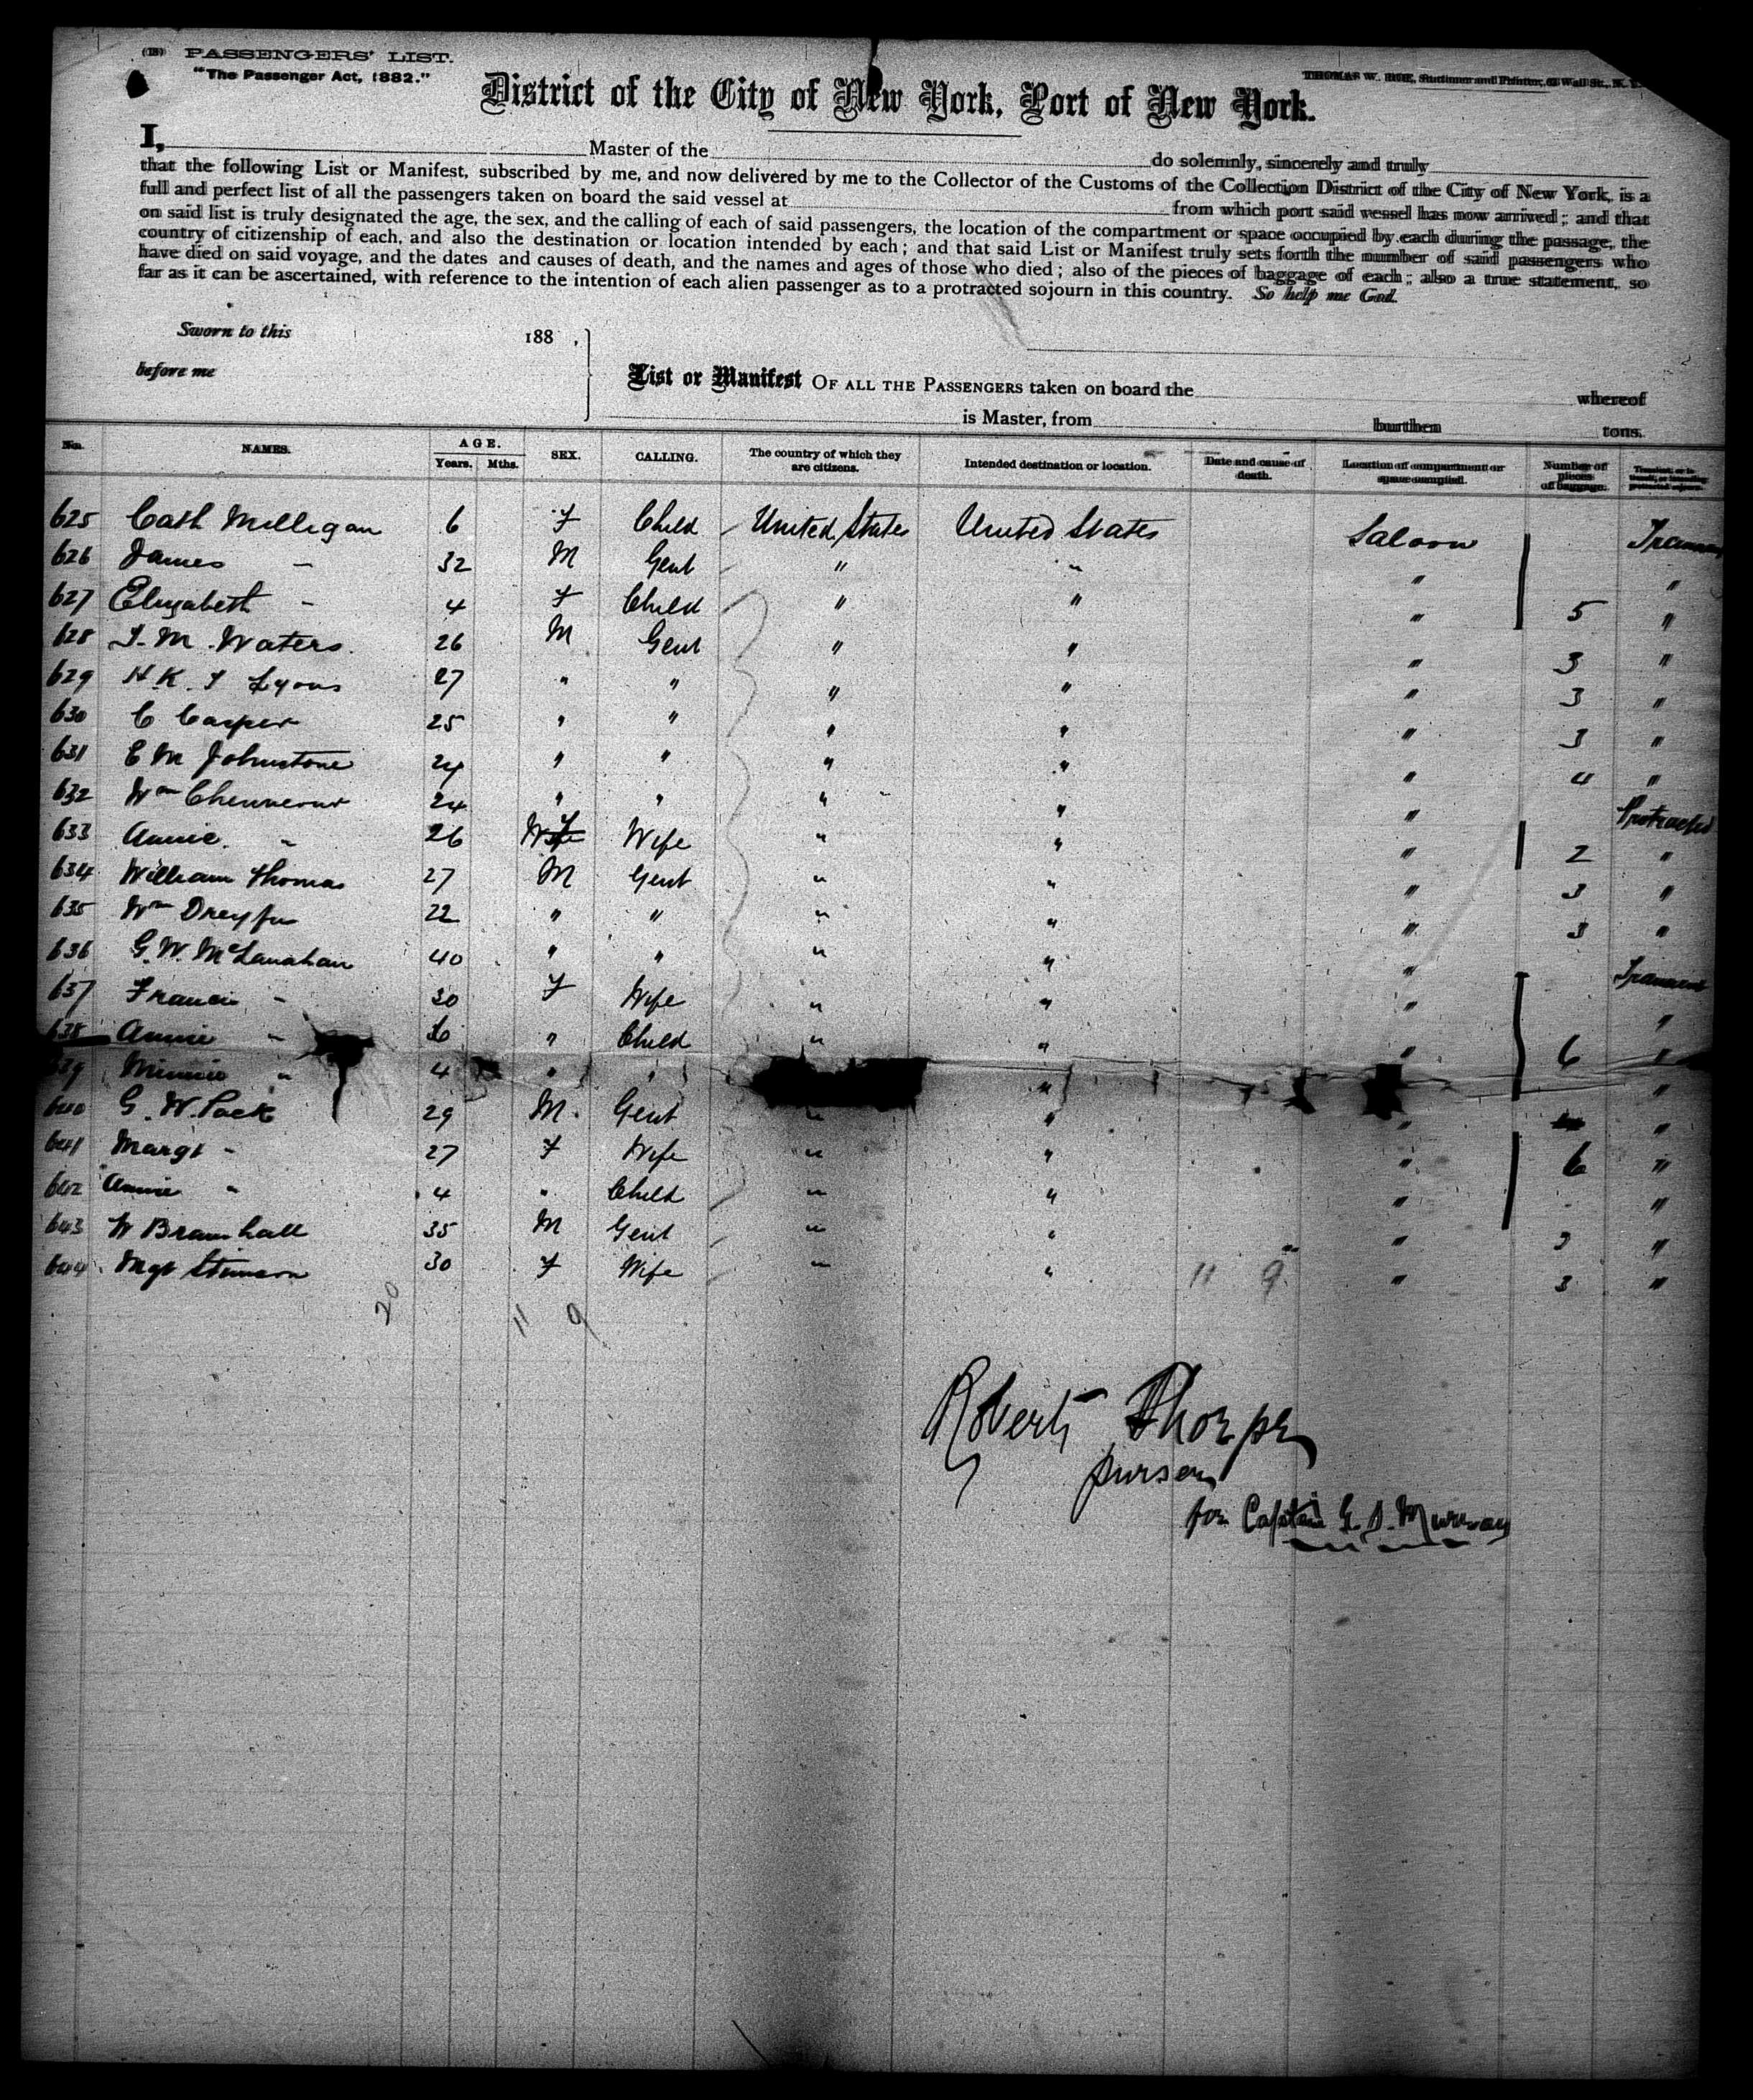 (B) PASSENGERS' LIST.
"The Passenger Act, 1882."
THOMAS W. Stationer and Printer, Wall St., N. Y.
District of the City of New York, Port of New York.
I, Master of the do solemnly, sincerely and truly
that the following List or Manifest, subscribed by me, and now delivered by me to the Collector of the Customs of the Collection District of the City of New York, is a
full and perfect list of all the passengers taken on board the said vessel at from which port said vessel has now arrived; and that
on said list is truly designated the age, the sex, and the calling of each of said passengers, the location of the compartment or space occupied by each during the passage, the
country of citizenship of each, and also the destination or location intended by each; and that said List or Manifest truly sets forth the number of said passengers who
have died on said voyage, and the dates and causes of death, and the names and ages of those who died; also of the pieces of baggage of each; also a true statement, so
far as it can be ascertained, with reference to the intention of each alien passenger as to a protracted sojourn in this country. So help me God.
Sworn to this 188 ,
before me
List or Manifest OF ALL THE PASSENGERS taken on board the whereof
is Master, from burthen tons.
No. NAMES. AGE. Years. Mths. SEX. CALLING. The country of which they are citizens. Intended destination or location. Date and cause of death. Location of compartment or space occupied. Number of pieces of baggage.
625 Cath Milligan 6 F Child United States United States Saloon
626 James - 32 M Gent " " " "
627 Elizabeth - 4 F Child " " " 5 "
628 M. Waters. 26 M Gent " " " 3 "
629 H. K. Lyons 27 " " " " " 3 "
630 C Casper 25 " " " " " 3 "
631 E M Johnstone 24 " " " " " 4 "
632 Wm 24 " " " " " Protracted
633 Annie " 26 F Wife " " " 2 "
634 William Thomas 27 M Gent " " " 3 "
635 Wm Dreyfus 22 " " " " " 3 "
636 G. W. McLanahan 40 " " " " "
637 Francis - 30 F Wife " " " "
638 Annie - " Child " " " 6 "
639 Minnie " 4 " " " "
640 G. W. Pack 29 M. Gent " " " "
641 Margt - 27 F Wife " " " 6 "
642 Annie " 4 " Child " " " "
643 W Bramhall 35 M Gent " " " "
644 Mgt 30 F Wife " " " 3 "
11 9
20 11 9
Robert Thorpe
purser
for Captain G. S. Murray